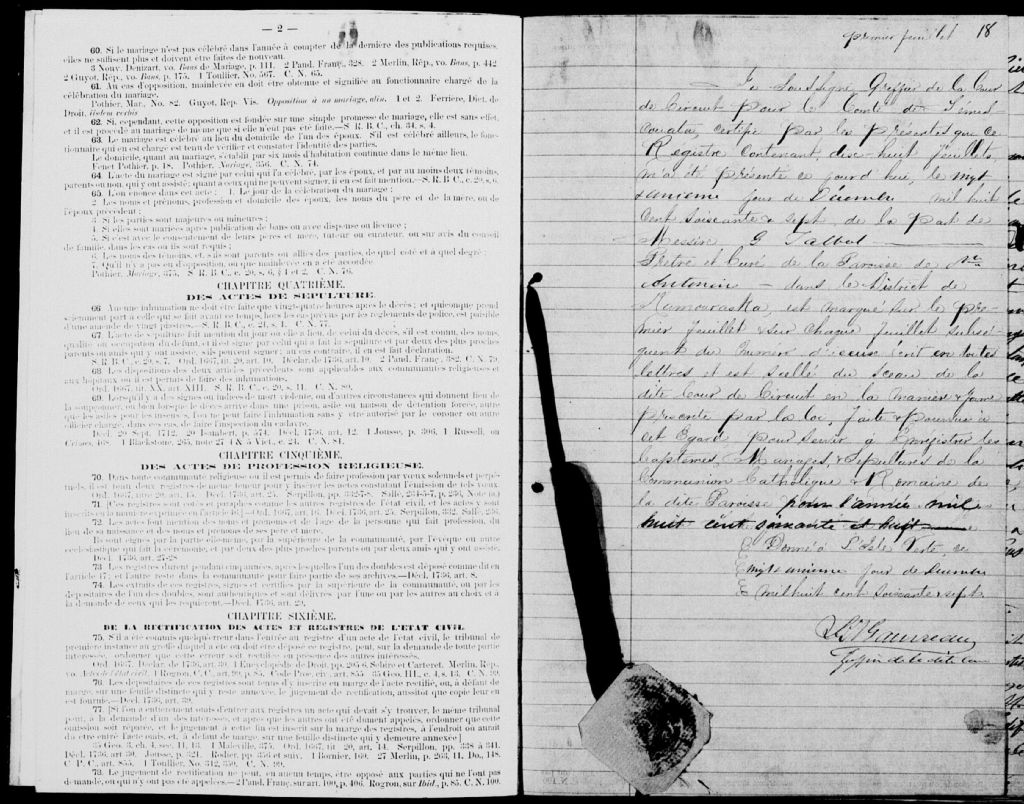 — 2 —
60. Si le mariage n'est pas célébré dans l'année à compter de la dernière des publications requises,
elles ne suffisent plus et doivent être faites de nouveau.
3 Nouv. Denizart, vo. Bans de Mariage, p. 111. 2 Pand. Franç., 328. 2 Merlin, Rép., vo. Bans, p. 442
2 Guyot, Rép., vo. Bans, p. 175. 1 Toullier, No. 567. C. N. 65.
61. Au cas d'opposition, mainlevée en doit être obtenue et signifiée au fonctionnaire chargé de la
célébration du mariage.
Pothier, Mar., No. 82. Guyot, Rep. Vis. Opposition à un mariage, alin. 1 et 2. Ferrière, Dict. de
Droit, iisdem verbis
62. Si, cependant, cette opposition est fondée sur une simple promesse de mariage, elle est sans effet,
et il est procédé au mariage de même que si elle n'eut pas été faite.—S. R. B. C., ch. 34, s. 4.
63. Le mariage est célébré au lieu du domicile de l'un des époux. S'il est célébré ailleurs, le fonc-
tionnaire qui en est chargé est tenu de vérifier et constater l'identité des parties.
Le domicile, quant au mariage, s'établit par six mois d'habitation continue dans le même lieu.
Fenet Pothier, p. 18. Pothier, Mariage, 356. C. N. 74.
64. L'acte du mariage est signé par celui qui l'a célébré, par les époux, et par au moins deux témoins,
parents ou non, qui y ont assisté; quant à ceux qui ne peuvent signer, il en est fait mention.—S. R. B. C., c. 20, s. 6.
65. L'on énonce dans cet acte: 1. Le jour de la célébration du mariage;
2 Les noms et prénoms, profession et domicile des époux, les noms du père et de la mère, ou de
l'époux précédent;
3 Si les parties sont majeures ou mineures;
4 Si elles sont mariées après publication de bans ou avec dispense ou licence;
5 Si c'est avec le consentement de leurs père et mère, tuteur ou curateur, ou sur avis du conseil
de famille, dans les cas où ils sont requis;
6. Les noms des témoins, et, s'ils sont parents ou alliés des parties, de quel côté et à quel degré;
7. Qu'il n'y a pas eu d'opposition, ou que mainlevée en a été accordée.
Pothier, Mariage, 375. S. R. B. C., c. 20, s. 6, § 1 et 2. C. N. 76.
CHAPITRE QUATRIÈME.
DES ACTES DE SEPULTURE.
66. Aucune inhumation ne doit être faite que vingt-quatre heures après le décès; et quiconque prend
sciemment part à celle qui se fait avant ce temps, hors les cas prévus par les règlements de police, est passible
d'une amende de vingt piastres.—S. R. B. C., c. 21, s. 1. C. N. 77.
67. L'acte de sépulture fait mention du jour où elle a lieu, de celui du décès, s'il est connu, des noms,
qualité ou occupation du défunt, et il est signé par celui qui a fait la sépulture et par deux des plus proches
parents ou amis qui y ont assisté, s'ils peuvent signer; au cas contraire, il en est fait déclaration.
S. R. B. C., c. 20, s. 7. Ord. 1667, tit. 20, art. 10. Déclar. de 1736, art. 10. 2 Pand. Franç., 382. C. N. 79.
68. Les dispositions des deux articles précédents sont applicables aux communautés religieuses et
aux hôpitaux où il est permis de faire des inhumations.
Ord. 1667, tit. XX, art. XIII. S. R. B. C., c. 20, s. 11. C. N. 80.
69. Lorsqu'il y a des signes ou indices de mort violente, ou d'autres circonstances qui donnent lieu de
la soupçonner, ou bien lorsque le décès arrive dans une prison, asile ou maison de détention forcée, autre
que les asiles pour les insensés, l'on ne peut faire l'inhumation sans y être autorisé par le coroner ou autre
officier chargé, dans ces cas, de faire l'inspection du cadavre.
Décl. 20 Sept. 1712. 20 Isambert, p. 574. Décl. 1736, art. 12. 1 Jousse, p. 306. 1 Russell, on
Crimes, 468. 1 Blackstone, 265, note 27. 4 & 5 Vict., c. 24. C. N. 81.
CHAPITRE CINQUIÈME.
DES ACTES DE PROFESSION RELIGIEUSE.
70. Dans toute communauté religieuse où il est permis de faire profession par vœux solennels et perpé-
tuels, il est tenu deux registres de même teneur pour y insérer les actes constatant l'émission de tels vœux.
Ord. 1667, titre 20, art. 15. Décl. 1736, art. 25. Serpillon, pp. 332-7-8. Sallé, 234-5-7, p. 236, Note (a.)
71 [Ces registres sont cotés et paraphés comme les autres registres de l'état civil, et les actes y sont
inscrits en la manière exprimée en l'article 46.]—Ord. 1667, art. 16. Décl. 1736, art. 25. Serpillon, 332. Sallé, 236.
72. Les actes font mention des noms et prénoms et de l'âge de la personne qui fait profession, du
lieu de sa naissance et des noms et prénoms de ses père et mère.
Ils sont signés par la partie elle-même, par la supérieure de la communauté, par l'évêque ou autre
ecclésiastique qui fait la cérémonie, et par deux des plus proches parents ou par deux amis qui y ont assisté.
Décl. 1736, art. 27-28
73. Les registres durent pendant cinq années, après lesquelles l'un des doubles est déposé comme dit en
l'article 47; et l'autre reste dans la communauté pour faire partie de ses archives.—Décl. 1736, art. 8.
74. Les extraits de ces registres, signés et certifiés par la supérieure de la communauté, ou par les
dépositaires de l'un des doubles, sont authentiques et sont délivrés par l'une ou par les autres au choix et à
la demande de ceux qui les requièrent.—Décl. 1736, art. 29.
CHAPITRE SIXIÈME.
DE LA RECTIFICATION DES ACTES ET REGISTRES DE L'ETAT CIVIL.
75. S'il a été commis quelqu'erreur dans l'entrée au registre d'un acte de l'état civil, le tribunal de
première instance au greffe duquel a été ou doit être déposé ce registre, peut, sur la demande de toute partie
intéressée, ordonner que cette erreur soit rectifiée en présence des autres intéressés.
Ord. 1667. Déclar. de 1736, art. 30. 1 Encyclopédie de Droit, pp. 205-6, Sebire et Carteret. Merlin, Rép.,
vo. Acte de l'état civil. 1 Rogron, C. C., art. 99, p. 85. Code Proc. civ., art. 855. 35 Geo. III., c. 4, s. 13. C. N. 99.
76. Les dépositaires de ces registres sont tenus d'y inscrire en marge de l'acte rectifié, ou, à défaut de
marge, sur une feuille distincte qui y reste annexée, le jugement de rectification, aussitôt que copie leur en
est fournie.—Décl. 1736, art. 30.
77. [Si l'on a entièrement omis d'entrer aux registres un acte qui devait s'y trouver, le même tribunal
peut, à la demande d'un des intéressés, et après que les autres ont été dûment appelés, ordonner que cette
omission soit réparée, et le jugement à cette fin est inscrit sur la marge des registres, à l'endroit où aurait
dû être entré l'acte omis, et, à défaut de marge, sur une feuille distincte qui y demeure annexée]
35 Geo. 3, ch. 4, sec. 11, 13. 1 Maleville, 375. Ord. 1667, tit. 20, art. 14. Serpillon, pp. 338 à 341.
Décl. 1736, art 30. Jousse, p. 321. Rodier, pp. 356 et suiv. 1 Bornier, 160. 27 Merlin, p. 263, 11. Do., 148.
C. P. C., art. 855. 1 Toullier, No. 342, 350. C. N. 99.
78. Le jugement de rectification ne peut, en aucun temps, être opposé aux parties qui ne l'ont pas
demandé, ou qui n'y ont pas été appelées.—2 Pand. Franç., sur art. 100, p. 406. Rogron, sur Ibid., p. 85. C. N. 100.
premier feuillet 18
Je Soussigné, Greffier de la Cour
de Circuit pour le Comté de Témis-
couata, certifie par les présentes que ce
Registre Contenant, dix-huit feuillets,
m'a été présenté ce jourd'hui, le vingt
& unieme jour de Décembre mil huit
Cent Soixante & sept de la part de
Messire G Talbot
Prêtre et Curé de la Paroisse de St
Antonin — dans le District de
Kamouraska, est marqué sur le Pre-
mier feuillet & sur chaque feuillet subsé-
quent du Numéro d'icelui écrit en toutes
lettres et est Scellé du Sceau de la
dite Cour de Circuit en la Manière & forme
prescrite par la loi, faite & pourvue à
cet Egard pour servir à Enregistrer les
Baptêmes, Mariages, & Sépultures de la
Communion Catholique & Romaine de
la dite Paroisse pour l'année mil
huit cent soixante et huit
Donné à L'Isle Verte, ce
vingt & unieme jour de Décembre
mil huit cent soixante & sept.
Greffier de la dite Cour